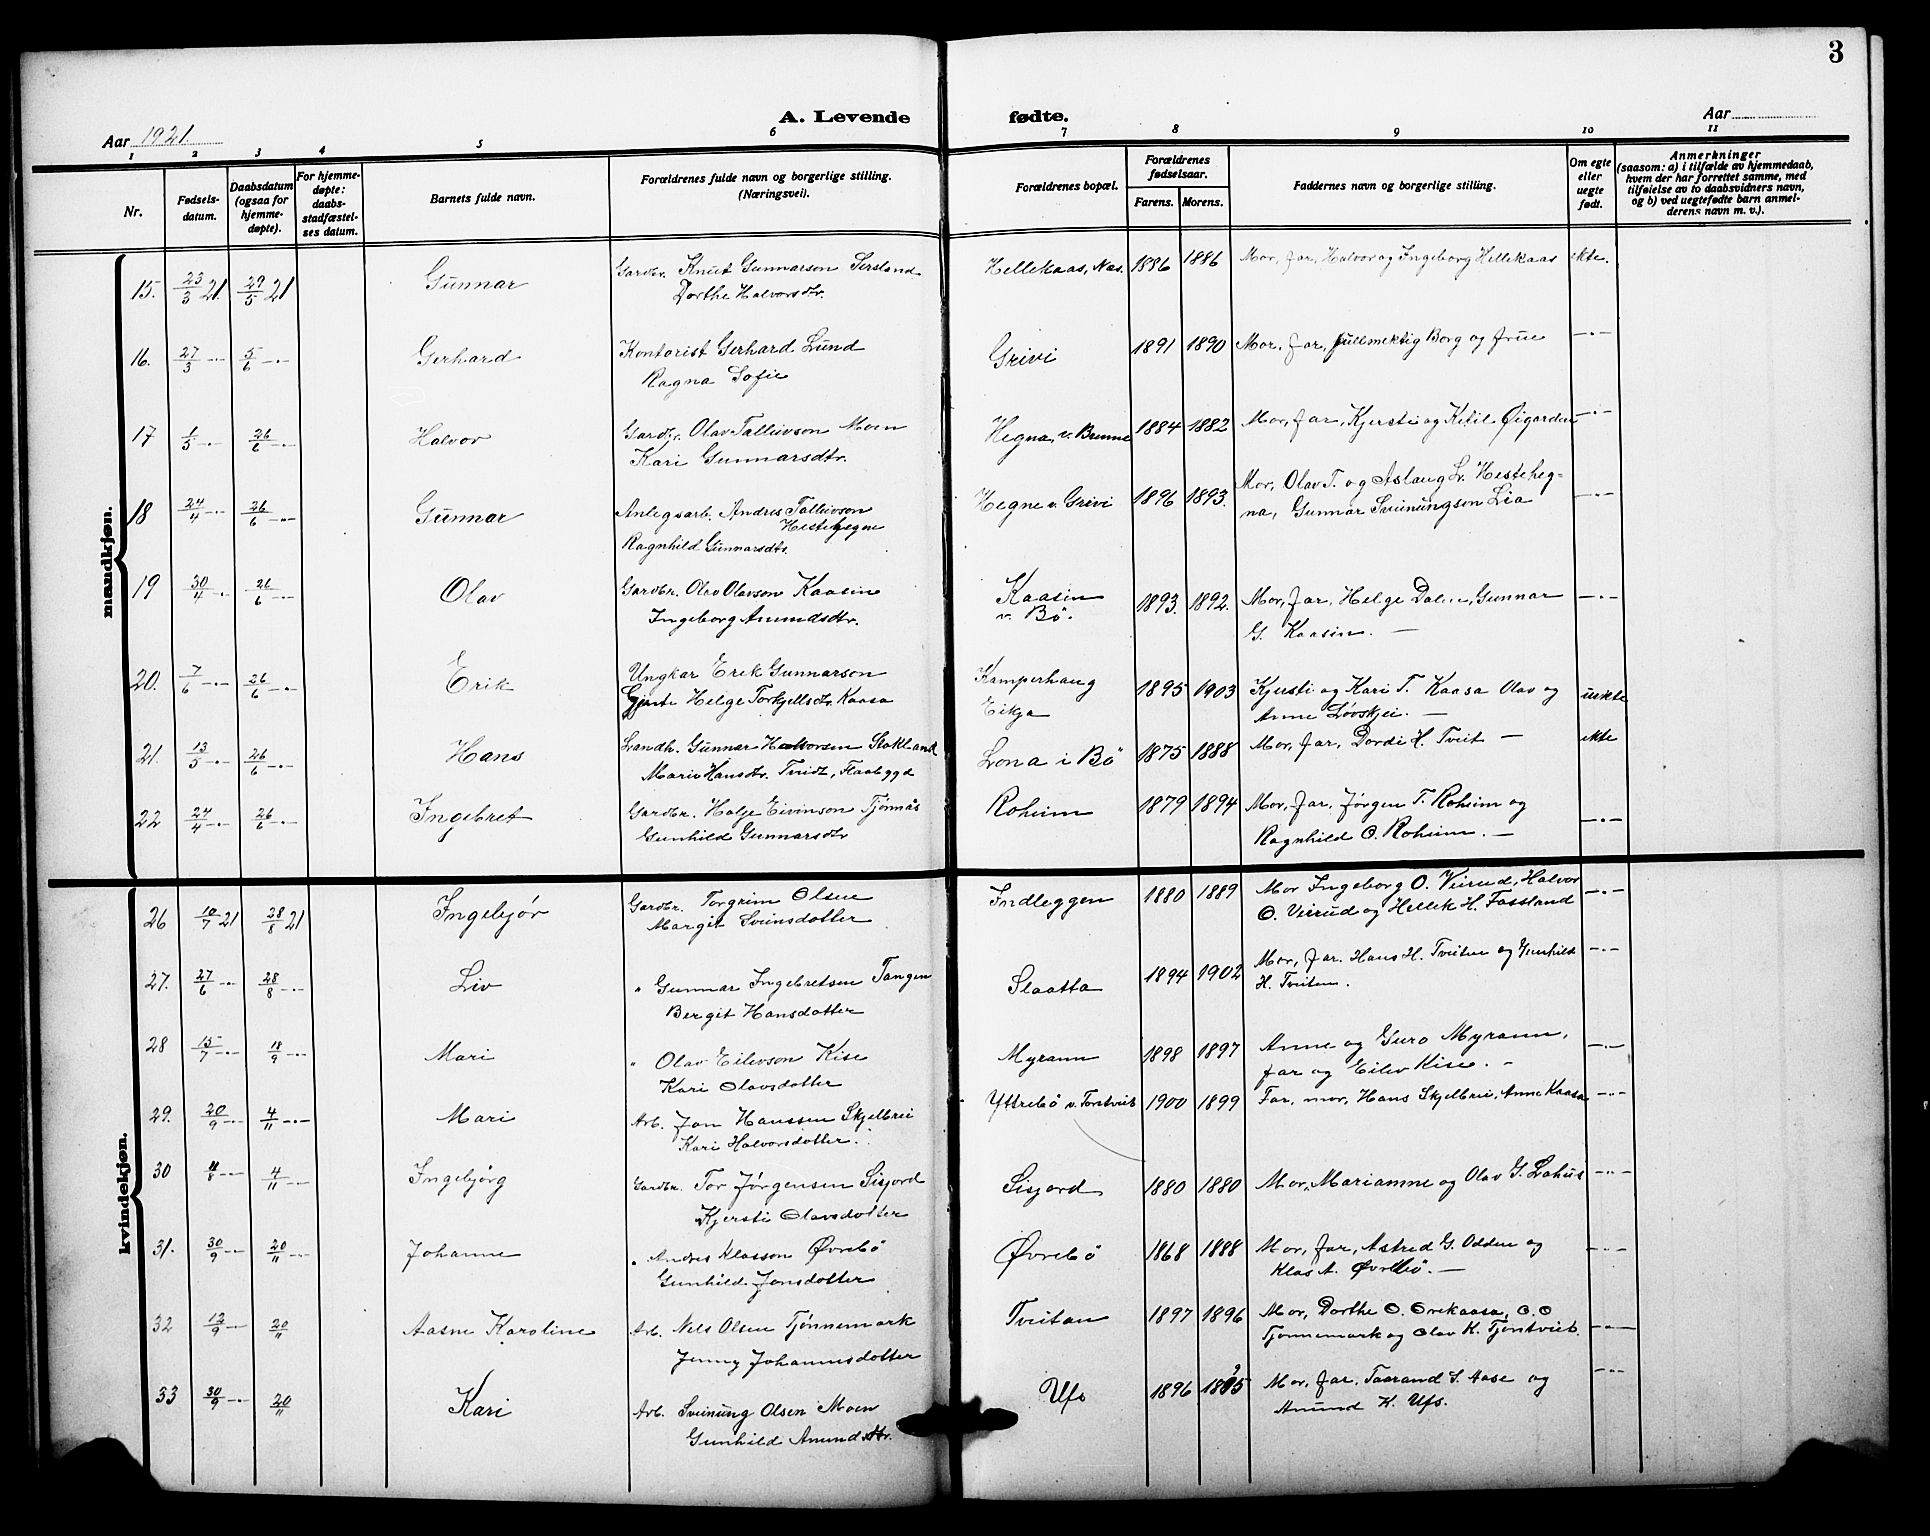 3
A. Levende fødte.
Aar 1921.
Aar
1 2 3 4 5 6 7 8 9 10 11
Nr.
Fødsels-
datum.
Daabsdatum
(ogsaa for
hjemme-
døpte).
For hjemme-
døpte:
daabs-
stadfæstel-
ses datum.
Barnets fulde navn.
Forældrenes fulde navn og borgerlige stilling.
(Næringsvei).
Forældrenes bopæl.
Forældrenes
fødselsaar.
Farens. Morens.
Faddernes navn og borgerlige stilling.
Om egte
eller
uegte
født.
Anmerkninger
(saasom: a) i tilfælde av hjemmedaab,
hvem der har forrettet samme, med
tilføielse av to daabsvidners navn,
og b) ved uegtefødte barn anmel-
derens navn m. v.).
mandkjøn.
15. 23/3 21. 29/5 21 Gunnar Gardbr. Knut Gunnarson Sersland Hellekaas, Næs. 1886 1886 Mor, far, Halvor og Ingeborg Hellekaas ekte.
Dorthe Halvorsdtr.
16. 27/3 -"- 5/6 -"- Gerhard Kontorist Gerhard Lund Grivi 1891 1890 Mor, far, fullmektig Borg og frue -"-
Ragna Sofie
17 1/5 -"- 26/6 -"- Halvor Gardbr. Olav Talleivson Moen Hegna, v. Brenne 1884 1882 Mor, far, Kjersti og Ketil Øigarden -"-
Kari Gunnarsdtr.
18 24/4 -"- 26/6 -"- Gunnar Anlegsarb. Andres Talleivson Hegne v. Grivi 1896 1893. Mor, Olav T. og Aslaug Lr. Hesteheg-
Hestehegne na, Gunnar Sveinungson Lia -"-
Ragnhild Gunnarsdtr.
19 30/4 -"- 26/6 -"- Olav Gardbr. Olav Olavson Kaasin Kaasin 1893. 1892. Mor, far, Helge Dalen, Gunnar -"-
Ingeborg Anundsdtr. v. Bö. G. Kaasin. —
20. 7/6 -"- 26/6 -"- Erik Ungkar Erik Gunnarson Kamperhaug 1895 1903 Kjersti og Kari T. Kaasa Olav og uekte
Gjente Helge Torkjellsdtr. Kaasa Eikja Anne Lövskjei. —
21. 13/5 -"- 26/6 -"- Hans Landh. Gunnar Halvorsen Stokland Lona i Bö 1875 1888 Mor, far, Dordi H. Tveit — ekte
Marie Hansdtr. Tveidt, Flaabygd
22 24/4 -"- 26/6 -"- Ingebret Gardbr. Helge Eivinson Tjönnås Roheim 1879 1894 Mor, far, Jörgen T. Roheim og
Gunhild Gunnarsdtr Ragnhild O. Roheim. — -"-
kvindekjøn.
26 10/7 21 28/8 21 Ingebjör Gardbr. Torgrim Olsen Indleggen 1880 1889 Mor Ingeborg O. Veirud, Halvor -"-
Margit Sveinsdotter O. Veirud og Hellek H. Fossland
27. 27/6 -"- 28/8 -"- Liv " Gunnar Ingebretsen Tangen Slaatta 1894 1902 Mor, far. Hans H. Tveiten og Gunhild -"-
Bergit Hansdotter H. Tveiten.
28 15/7 -"- 18/9 -"- Mari " Olav Eilevson Kise Myrann 1898 1897 Anne og Guro Myrann, -"-
Kari Olavsdotter far og Eilev Kise. —
29. 20/9 -"- 4/11 -"- Mari Arb. Jon Hanssen Skjelbrei Yttrebö v. Torstveit 1900 1899 Far, mor, Hans Skjelbrei, Anne Kaasa -"-
Kari Halvorsdotter.
30 /8 -"- 4/11 -"- Ingebjörg Gardbr. Tor Jörgensen Sisjord Sisjord 1880 1880 Mor, Mariamne og Olav G. Lahus -"-
Kjersti Olavsdotter
31. 30/9 -"- 20/11 -"- Johanne " Andres Klasson Øvrebö Øvrebö 1868 1888 Mor, far, Astrid G. Odden og -"-
Gunhild Jonsdotter Klas A. Øvrebö. —
32 12/9 -"- 20/11 Aasne Karoline Arb. Nels Olsen Tjönnemark Tveitan 1897 1896 Mor, Dorthe O. Orekaasa, O. O
Jenny Johannesdotter Tjönnemark og Olav K. Tjöntveit. -"-
33 30/9 -"- 20/11 Kari Arb. Sveinung Olsen Moen Ufs 1896 1895 Mor, far, Taarand S. Aase og -"-
Gunhild Anundsdtr. Anund K. Ufs.